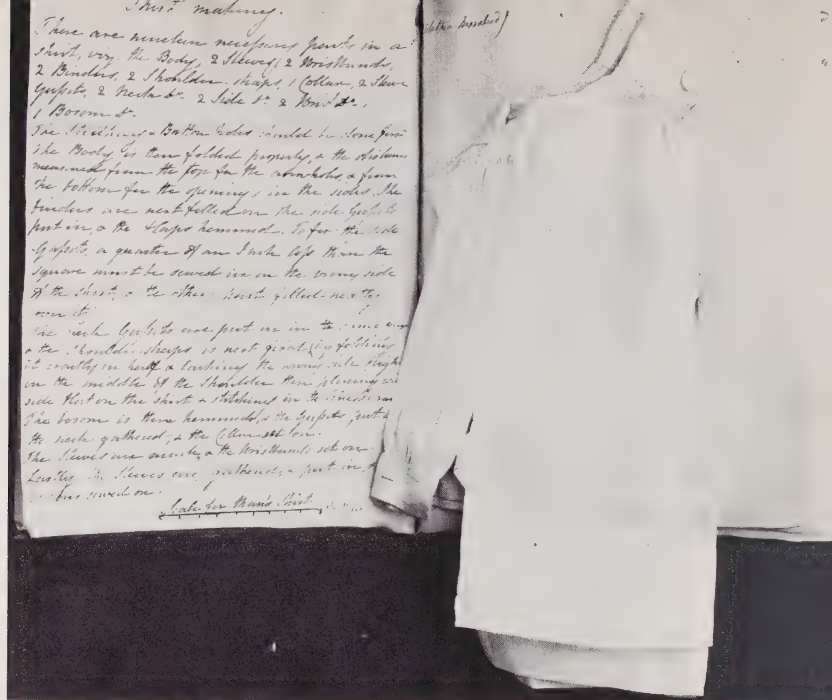 Shirt making.
There are nineteen necessary parts in a
Shirt, viz. the Body, 2 Sleeves, 2 Wristbands,
2 Binders, 2 Shoulder straps, 1 Collar, 2 Sleeve
Gussets, 2 Neck do. 2 Side do. 2 Wrist do.,
1 Bosom do.
The Stitching & Button holes should be done first
The Body is then folded properly, & the distance
measured from the top for the armholes, & from
the bottom for the openings in the sides. The
binders are next felled on the side Gussets
put in, & the flaps hemmed. To fix the side
Gussets, a quarter of an Inch less than the
square must be sewed in on the wrong side
of the Shirt, & the other part felled
over it.
The neck Gussets are put in in the same way
& the Shoulder straps is next fixed by folding
it exactly in half & tacking the wrong side
on the middle of the Shoulder then
side that on the shirt & stitching in the
The bosom is then hemmed, & the Gussets put
the neck gathered, & the Collar set on.
The Sleeves are made, & the Wristbands set on
Lastly the Sleeves are gathered, & put in, &
sewed on.
Scale for Man's Shirt